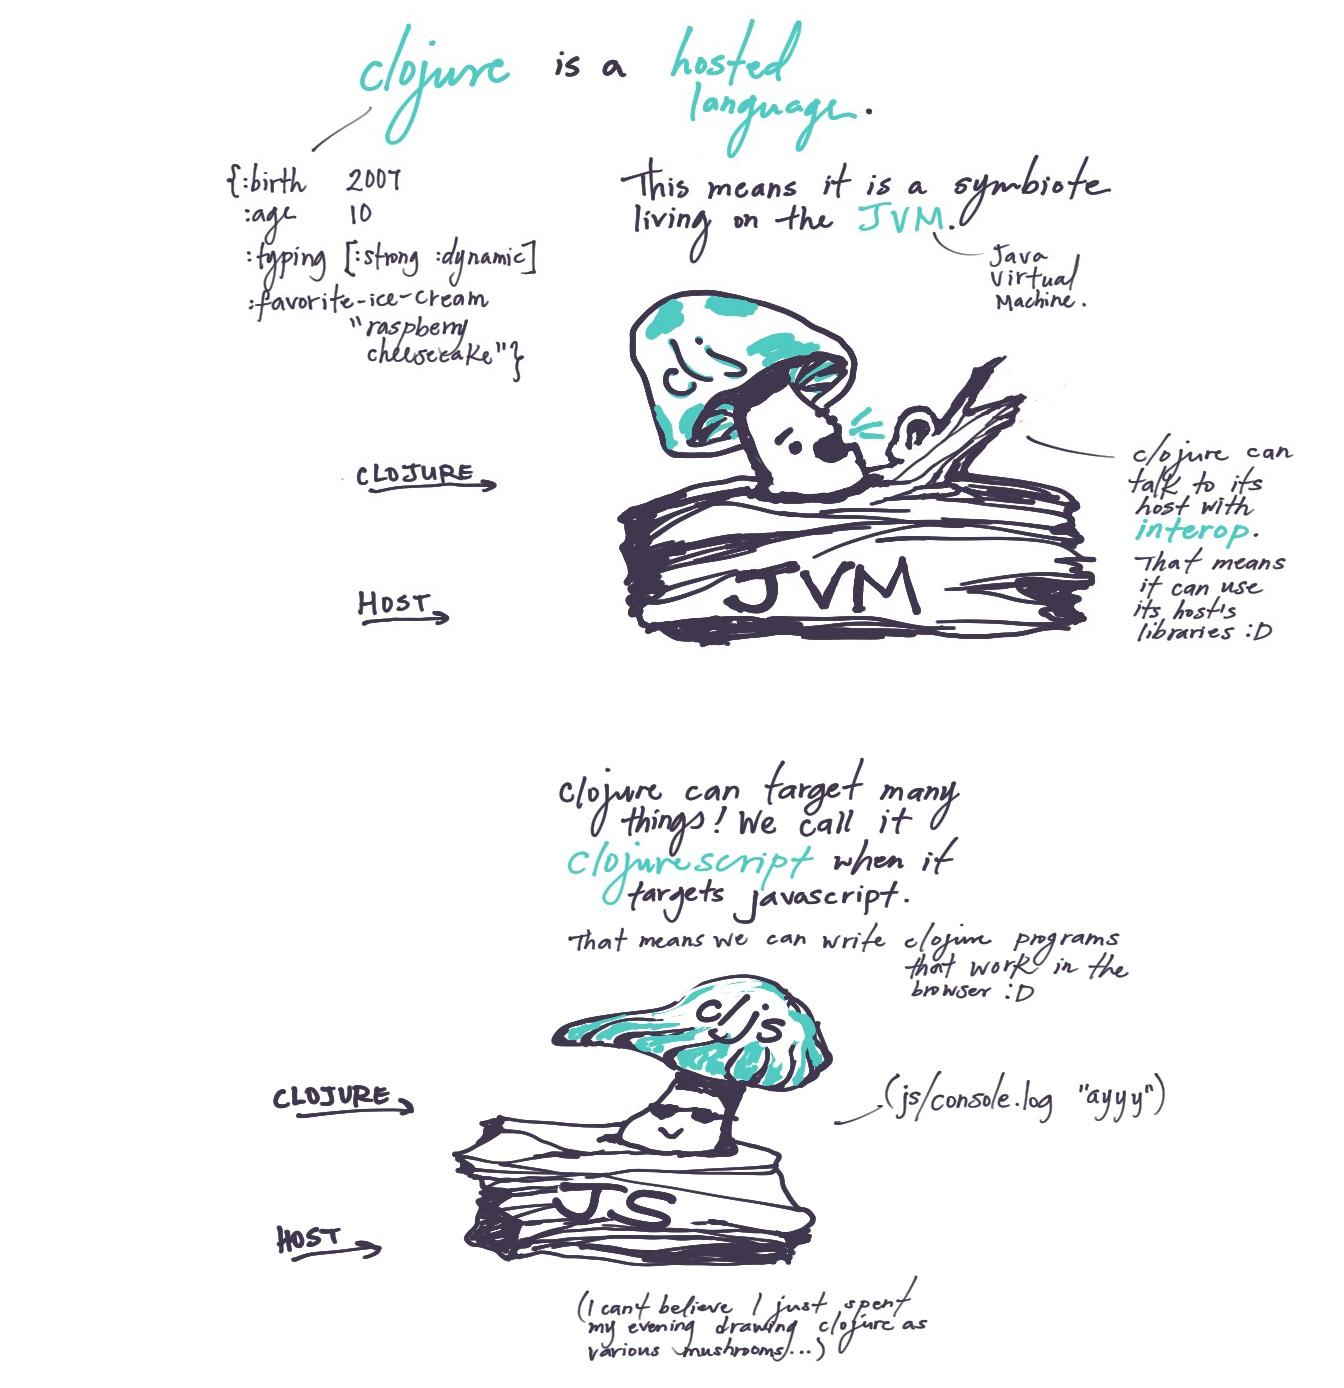 clojure is a hosted
language.
{:birth 2007
:age 10
:typing [:strong :dynamic]
:favorite-ice-cream
"raspberry
cheesecake"}
This means it is a symbiote
living on the JVM.
Java
Virtual
Machine.
clj
CLOJURE
HOST
JVM
clojure can
talk to its
host with
interop.
That means
it can use
its host's
libraries :D
clojure can target many
things! We call it
clojurescript when it
targets javascript.
That means we can write clojure programs
that work in the
browser :D
cljs
CLOJURE
(js/console.log "ayyy")
JS
HOST
(I can't believe I just spent
my evening drawing clojure as
various mushrooms...)